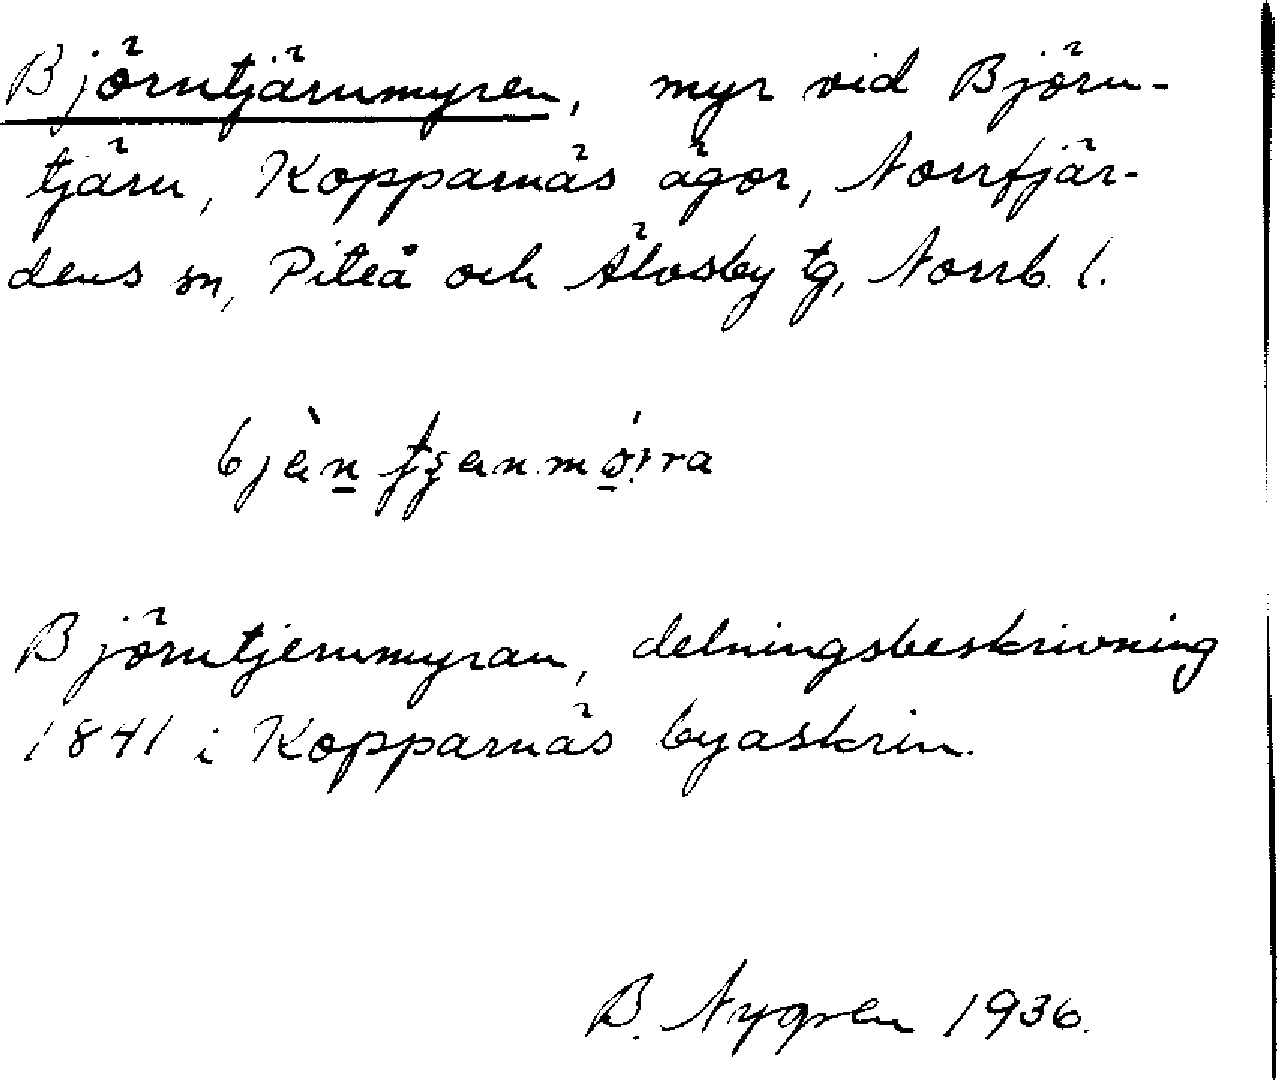 Björntjärnmyren, myr vid Björn-
tjärn, Kopparnäs ägor, Norrfjär-
dens sn, Piteå och Älvsby tg, Norrb. l.
Björntjernmyran, delningsbeskrivning
1841 i Kopparnäs byaskrin.
B. Nygren 1936.